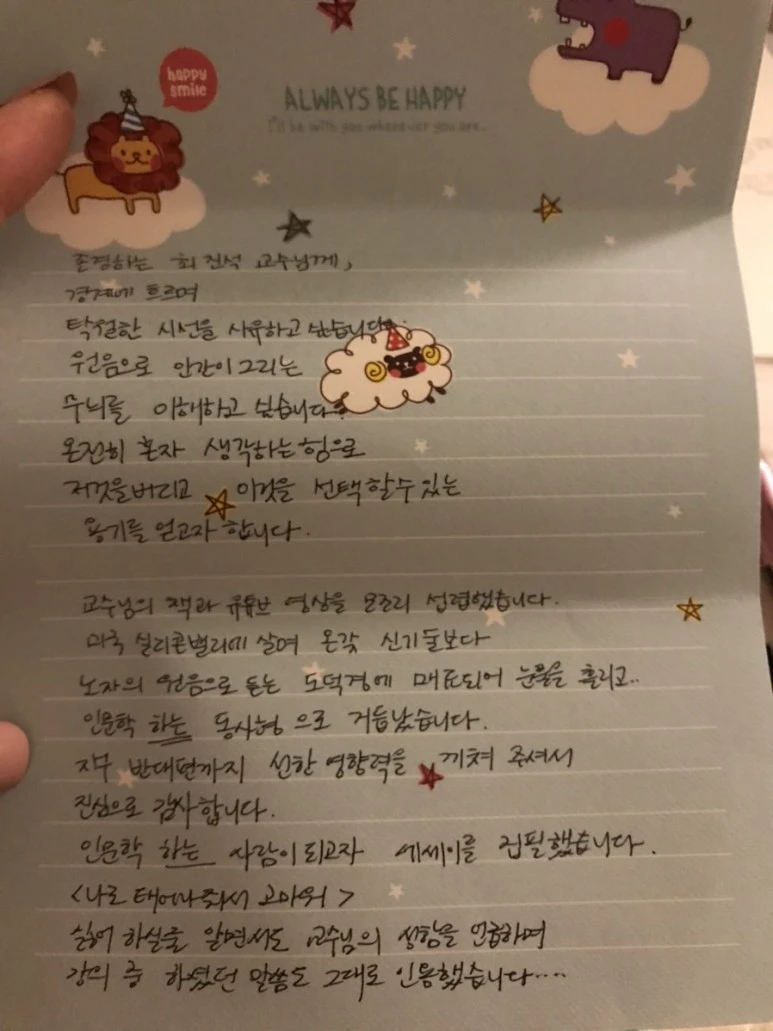 happy
smile
ALWAYS BE HAPPY
I'll be with you wherever you are...
존경하는 최진석 교수님께,
경계에 흐르며
탁월한 시선을 사유하고 싶습니다.
원음으로 인간이 그리는
무늬를 이해하고 싶습니다.
온전히 혼자 생각하는 힘으로
저것을 버리고 이것을 선택할 수 있는
용기를 얻고자 합니다.
교수님의 책과 유튜브 영상을 모조리 섭렵했습니다.
미국 실리콘밸리에 살며 온갖 신기술보다
노자의 원음으로 듣는 도덕경에 매료되어 눈물을 흘리고..
인문학 하는 동사형으로 거듭났습니다.
지구 반대편까지 선한 영향력을 끼쳐 주셔서
진심으로 감사합니다.
인문학 하는 사람이 되고자 에세이를 집필했습니다.
<나로 태어나줘서 고마워>
싫어하실줄 알면서도 교수님의 성함을 언급하며
강의 중 하셨던 말씀도 그대로 인용했습니다....